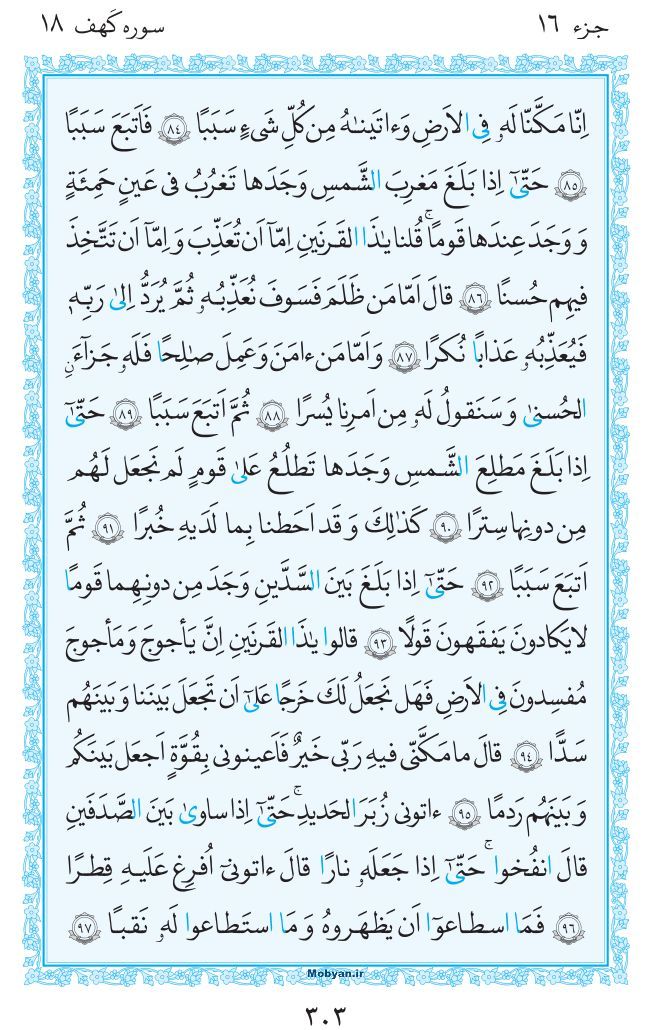 جزء ۱۶
سوره کَهف ۱۸
اِنّا مَكَّنّا لَهٗ فِی الاَرضِ وَءاتَینٰهُ مِن كُلِّ شَیءٍ سَبَبًا ﴿۸۴﴾ فَاَتبَعَ سَبَبًا
﴿۸۵﴾ حَتّیٰٓ اِذا بَلَغَ مَغرِبَ الشَّمسِ وَجَدَها تَغرُبُ فی عَینٍ حَمِئَةٍ
وَ وَجَدَ عِندَها قَومًا ۚ قُلنا یٰذَا القَرنَینِ اِمّآ اَن تُعَذِّبَ وَ اِمّآ اَن تَتَّخِذَ
فیهِم حُسنًا ﴿۸۶﴾ قالَ اَمّا مَن ظَلَمَ فَسَوفَ نُعَذِّبُهٗ ثُمَّ یُرَدُّ اِلیٰ رَبِّهٖ
فَیُعَذِّبُهٗ عَذابًا نُكرًا ﴿۸۷﴾ وَ اَمّا مَن ءامَنَ وَ عَمِلَ صٰلِحًا فَلَهٗ جَزآءَنِ
الحُسنیٰ وَ سَنَقولُ لَهٗ مِن اَمرِنا یُسرًا ﴿۸۸﴾ ثُمَّ اَتبَعَ سَبَبًا ﴿۸۹﴾ حَتّیٰٓ
اِذا بَلَغَ مَطلِعَ الشَّمسِ وَجَدَها تَطلُعُ عَلیٰ قَومٍ لَم نَجعَل لَهُم
مِن دونِها سِترًا ﴿۹۰﴾ كَذٰلِكَ وَ قَد اَحَطنا بِما لَدَیهِ خُبرًا ﴿۹۱﴾ ثُمَّ
اَتبَعَ سَبَبًا ﴿۹۲﴾ حَتّیٰٓ اِذا بَلَغَ بَینَ السَّدَّینِ وَجَدَ مِن دونِهِما قَومًا
لا یَكادونَ یَفقَهونَ قَولًا ﴿۹۳﴾ قالوا یٰذَا القَرنَینِ اِنَّ یَأجوجَ وَ مَأجوجَ
مُفسِدونَ فِی الاَرضِ فَهَل نَجعَلُ لَكَ خَرجًا عَلیٰٓ اَن تَجعَلَ بَینَنا وَ بَینَهُم
سَدًّا ﴿۹۴﴾ قالَ ما مَكَّنّی فیهِ رَبّی خَیرٌ فَاَعینونی بِقُوَّةٍ اَجعَل بَینَكُم
وَ بَینَهُم رَدمًا ﴿۹۵﴾ ءاتونی زُبَرَ الحَدیدِ ۚ حَتّیٰٓ اِذا ساویٰ بَینَ الصَّدَفَینِ
قالَ انفُخوا ۚ حَتّیٰٓ اِذا جَعَلَهٗ نارًا قالَ ءاتونیٓ اُفرِغ عَلَیهِ قِطرًا
﴿۹۶﴾ فَمَا اسطاعوٓا اَن یَظهَروهُ وَ مَا استَطاعوا لَهٗ نَقبًا ﴿۹۷﴾
Mobyan.ir
۳۰۳